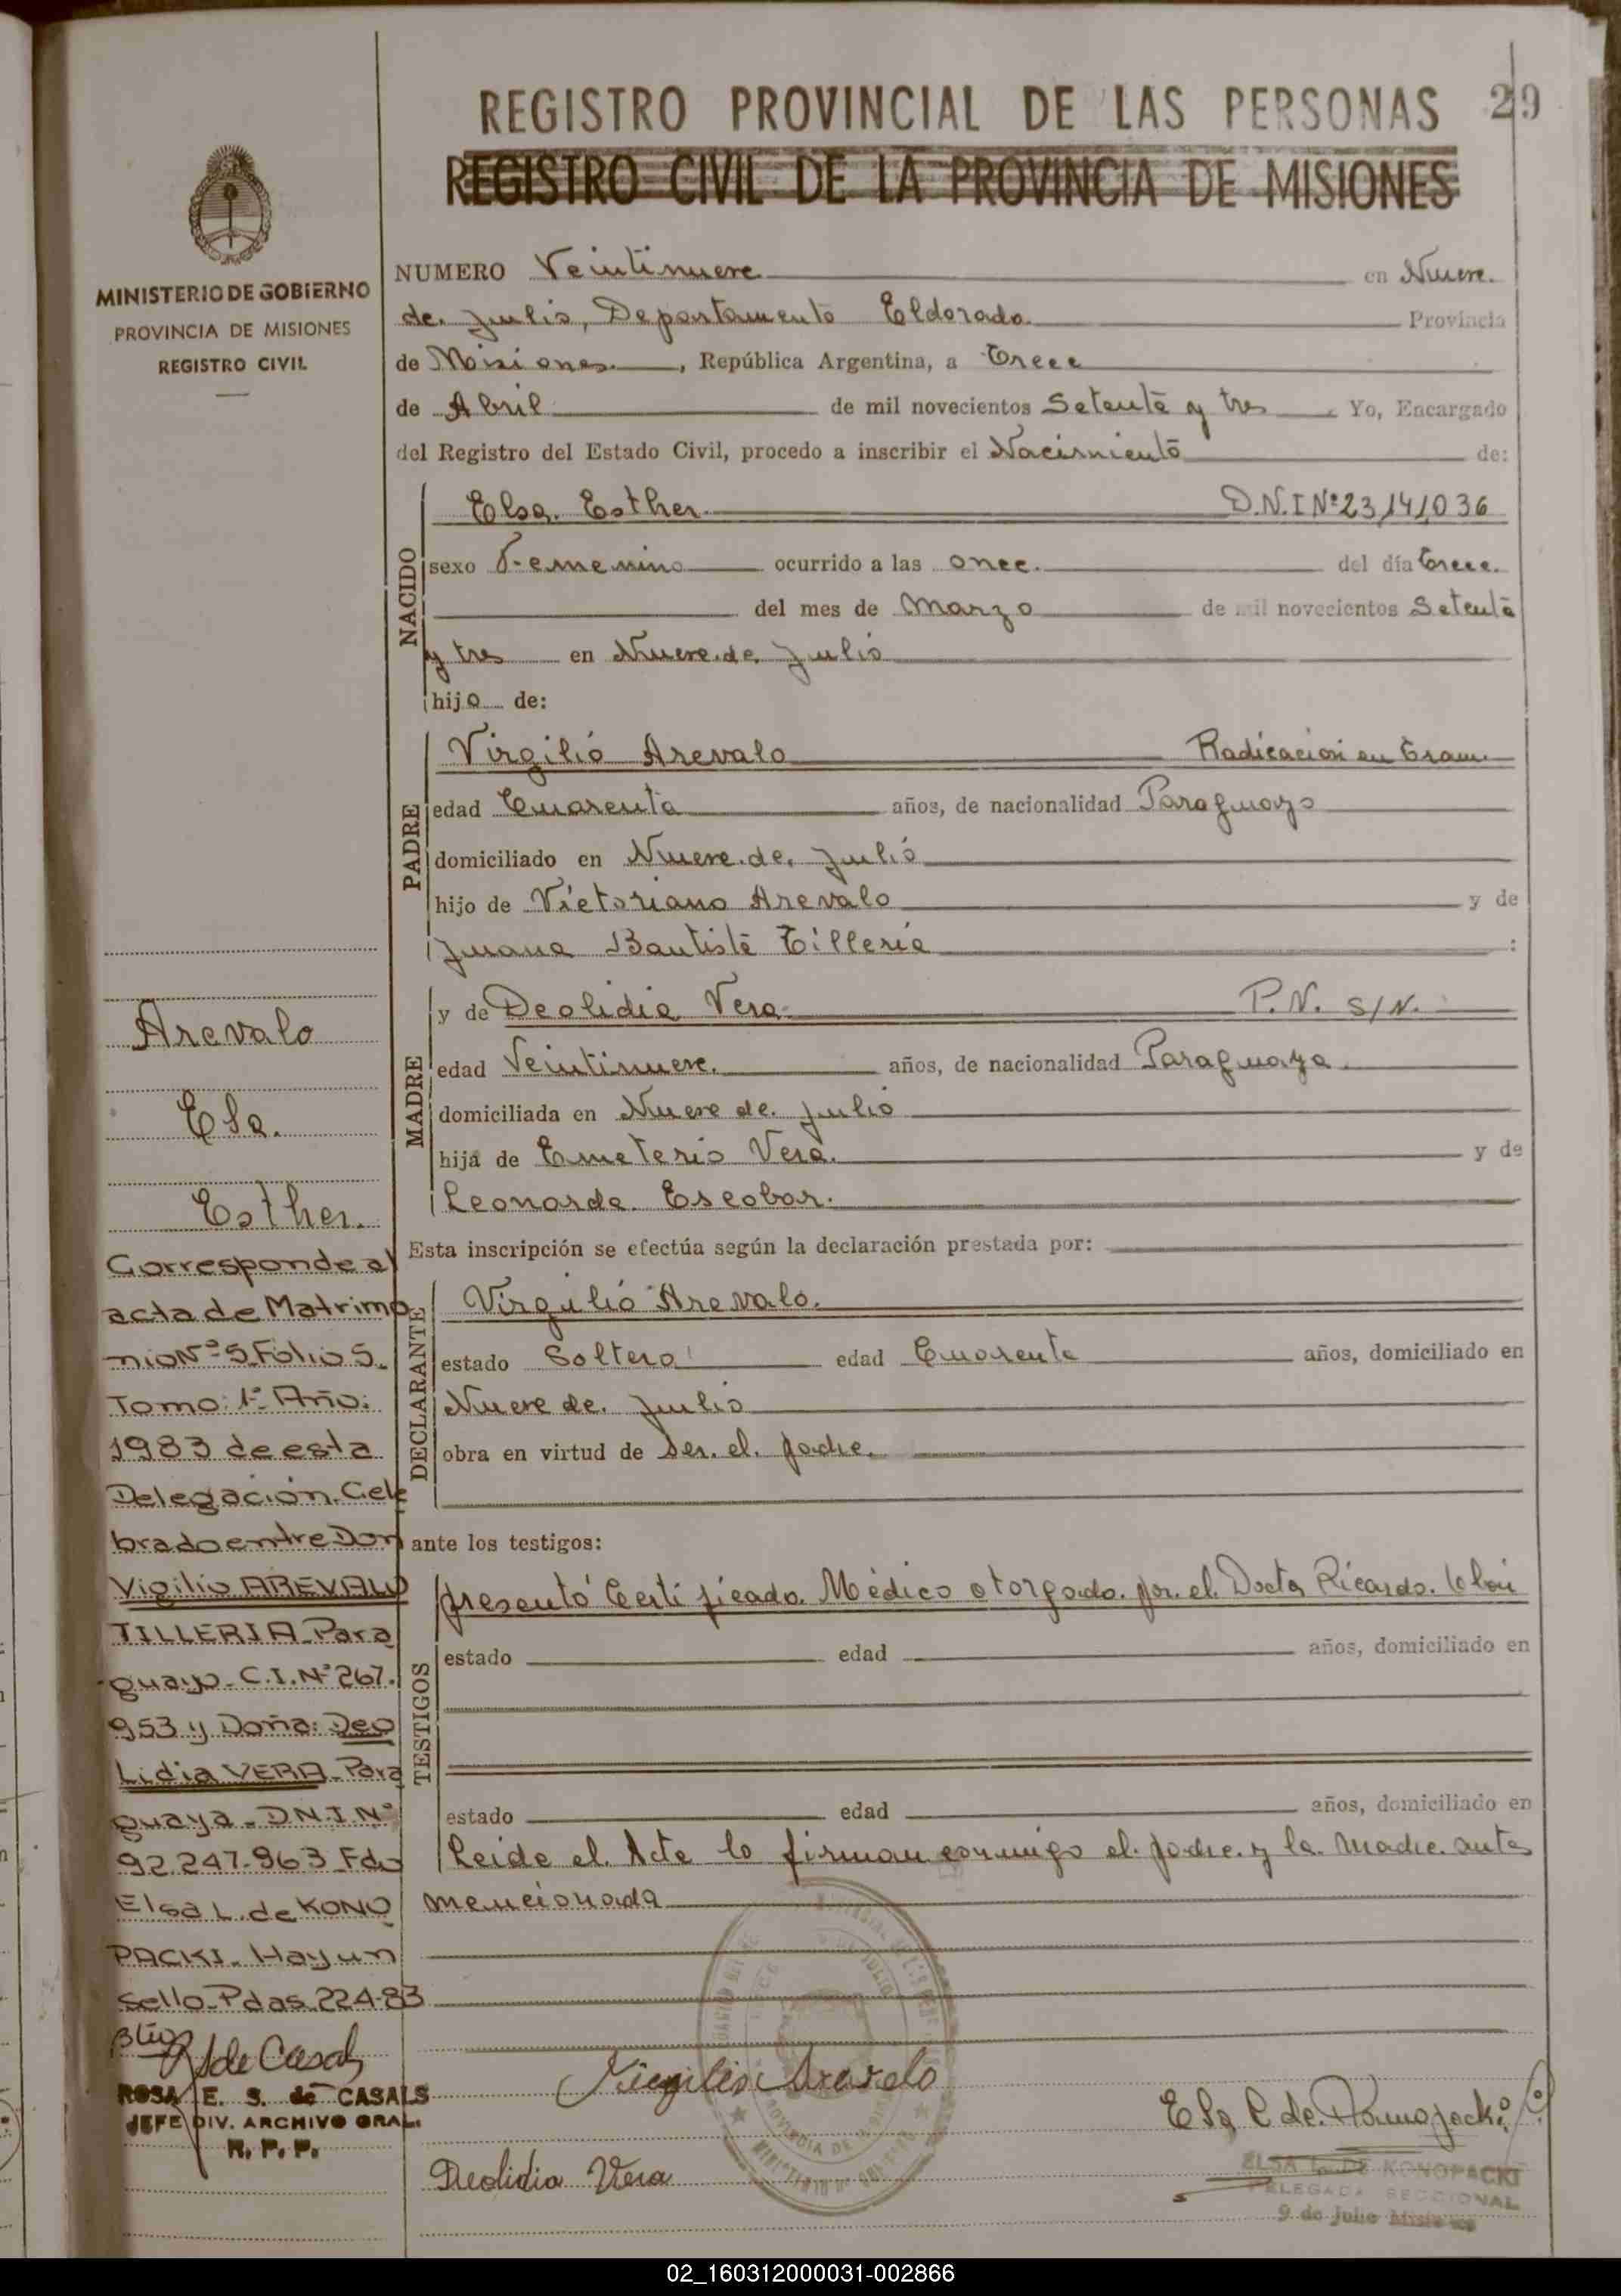 REGISTRO PROVINCIAL DE LAS PERSONAS 29
REGISTRO CIVIL DE LA PROVINCIA DE MISIONES
MINISTERIO DE GOBIERNO
PROVINCIA DE MISIONES
REGISTRO CIVIL
NUMERO Veintinueve en Nueve
de Julio, Departamento Eldorado Provincia
de Misiones, República Argentina, a Trece
de Abril de mil novecientos Setenta y tres Yo, Encargado
del Registro del Estado Civil, procedo a inscribir el Nacimiento de:
NACIDO
Elsa Esther D.N.I Nº 23,141,036
sexo Femenino ocurrido a las once del día trece
del mes de Marzo de mil novecientos Setenta
y tres en Nueve de Julio
hijo de:
PADRE
Virgilio Arevalo Radicacion en Tram.
edad Cuarenta años, de nacionalidad Paraguayo
domiciliado en Nueve de Julio
hijo de Victoriano Arevalo y de
Juana Bautista Tilleria :
MADRE
y de Deolidia Vera P.N. S/N.
edad Veintinueve años, de nacionalidad Paraguaya
domiciliada en Nueve de Julio
hija de Emeterio Vera y de
Leonarda Escobar.
Esta inscripción se efectúa según la declaración prestada por:
DECLARANTE
Virgilio Arevalo.
estado Soltero edad Cuarenta años, domiciliado en
Nueve de Julio
obra en virtud de ser el padre.
ante los testigos:
TESTIGOS
presentó Certificado Médico otorgado por el Doctor Ricardo
estado edad años, domiciliado en
estado edad años, domiciliado en
Leida el Acta lo firman conmigo el padre y la Madre antes
mencionada
Arevalo
Elsa
Esther.
Corresponde al
acta de Matrimo
nio Nº 5 Folio 5.
Tomo: 1º Año:
1983 de esta
Delegación. Cele
brado entre Don
Vigilio AREVALO
TILLERIA Para
guayo. C.I. Nº 267.
953 y Doña: Deo
Lidia VERA. Para
guaya. D.N.I. Nº
92.247.963 Fdo
Elsa L. de KONO
PACKI. Hay un
Sello. Pdas. 224-83
R S de Casals
ROSA E. S. de CASALS
JEFE DIV. ARCHIVO GRAL.
R. P. P.
Virgilio Arevalo
Elsa L de Konopacki
Deolidia Vera
ELSA L. DE KONOPACKI
DELEGADA SECCIONAL
9 de Julio Misiones
02_160312000031-002866